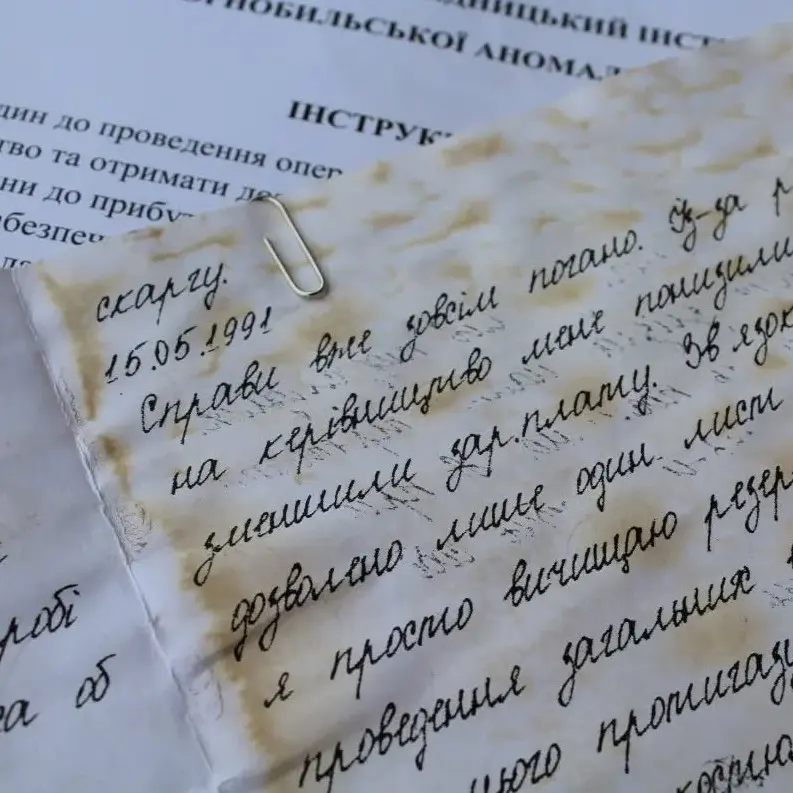 ІНСТ
НОБИЛЬСЬКОЇ АНОМАЛ
ІНСТРУК
до проведення опер
тво та отримати
ни до прибу
безпеч
скаргу.
15.05.1991
Справи вже зовсім погано. Із-за
на керівництво мене понизили
зменшили зар.плату. Зв'язок
дозволено лише один лист
я просто вичищаю резер
проведення загальних
цього протигазу
робі
са об